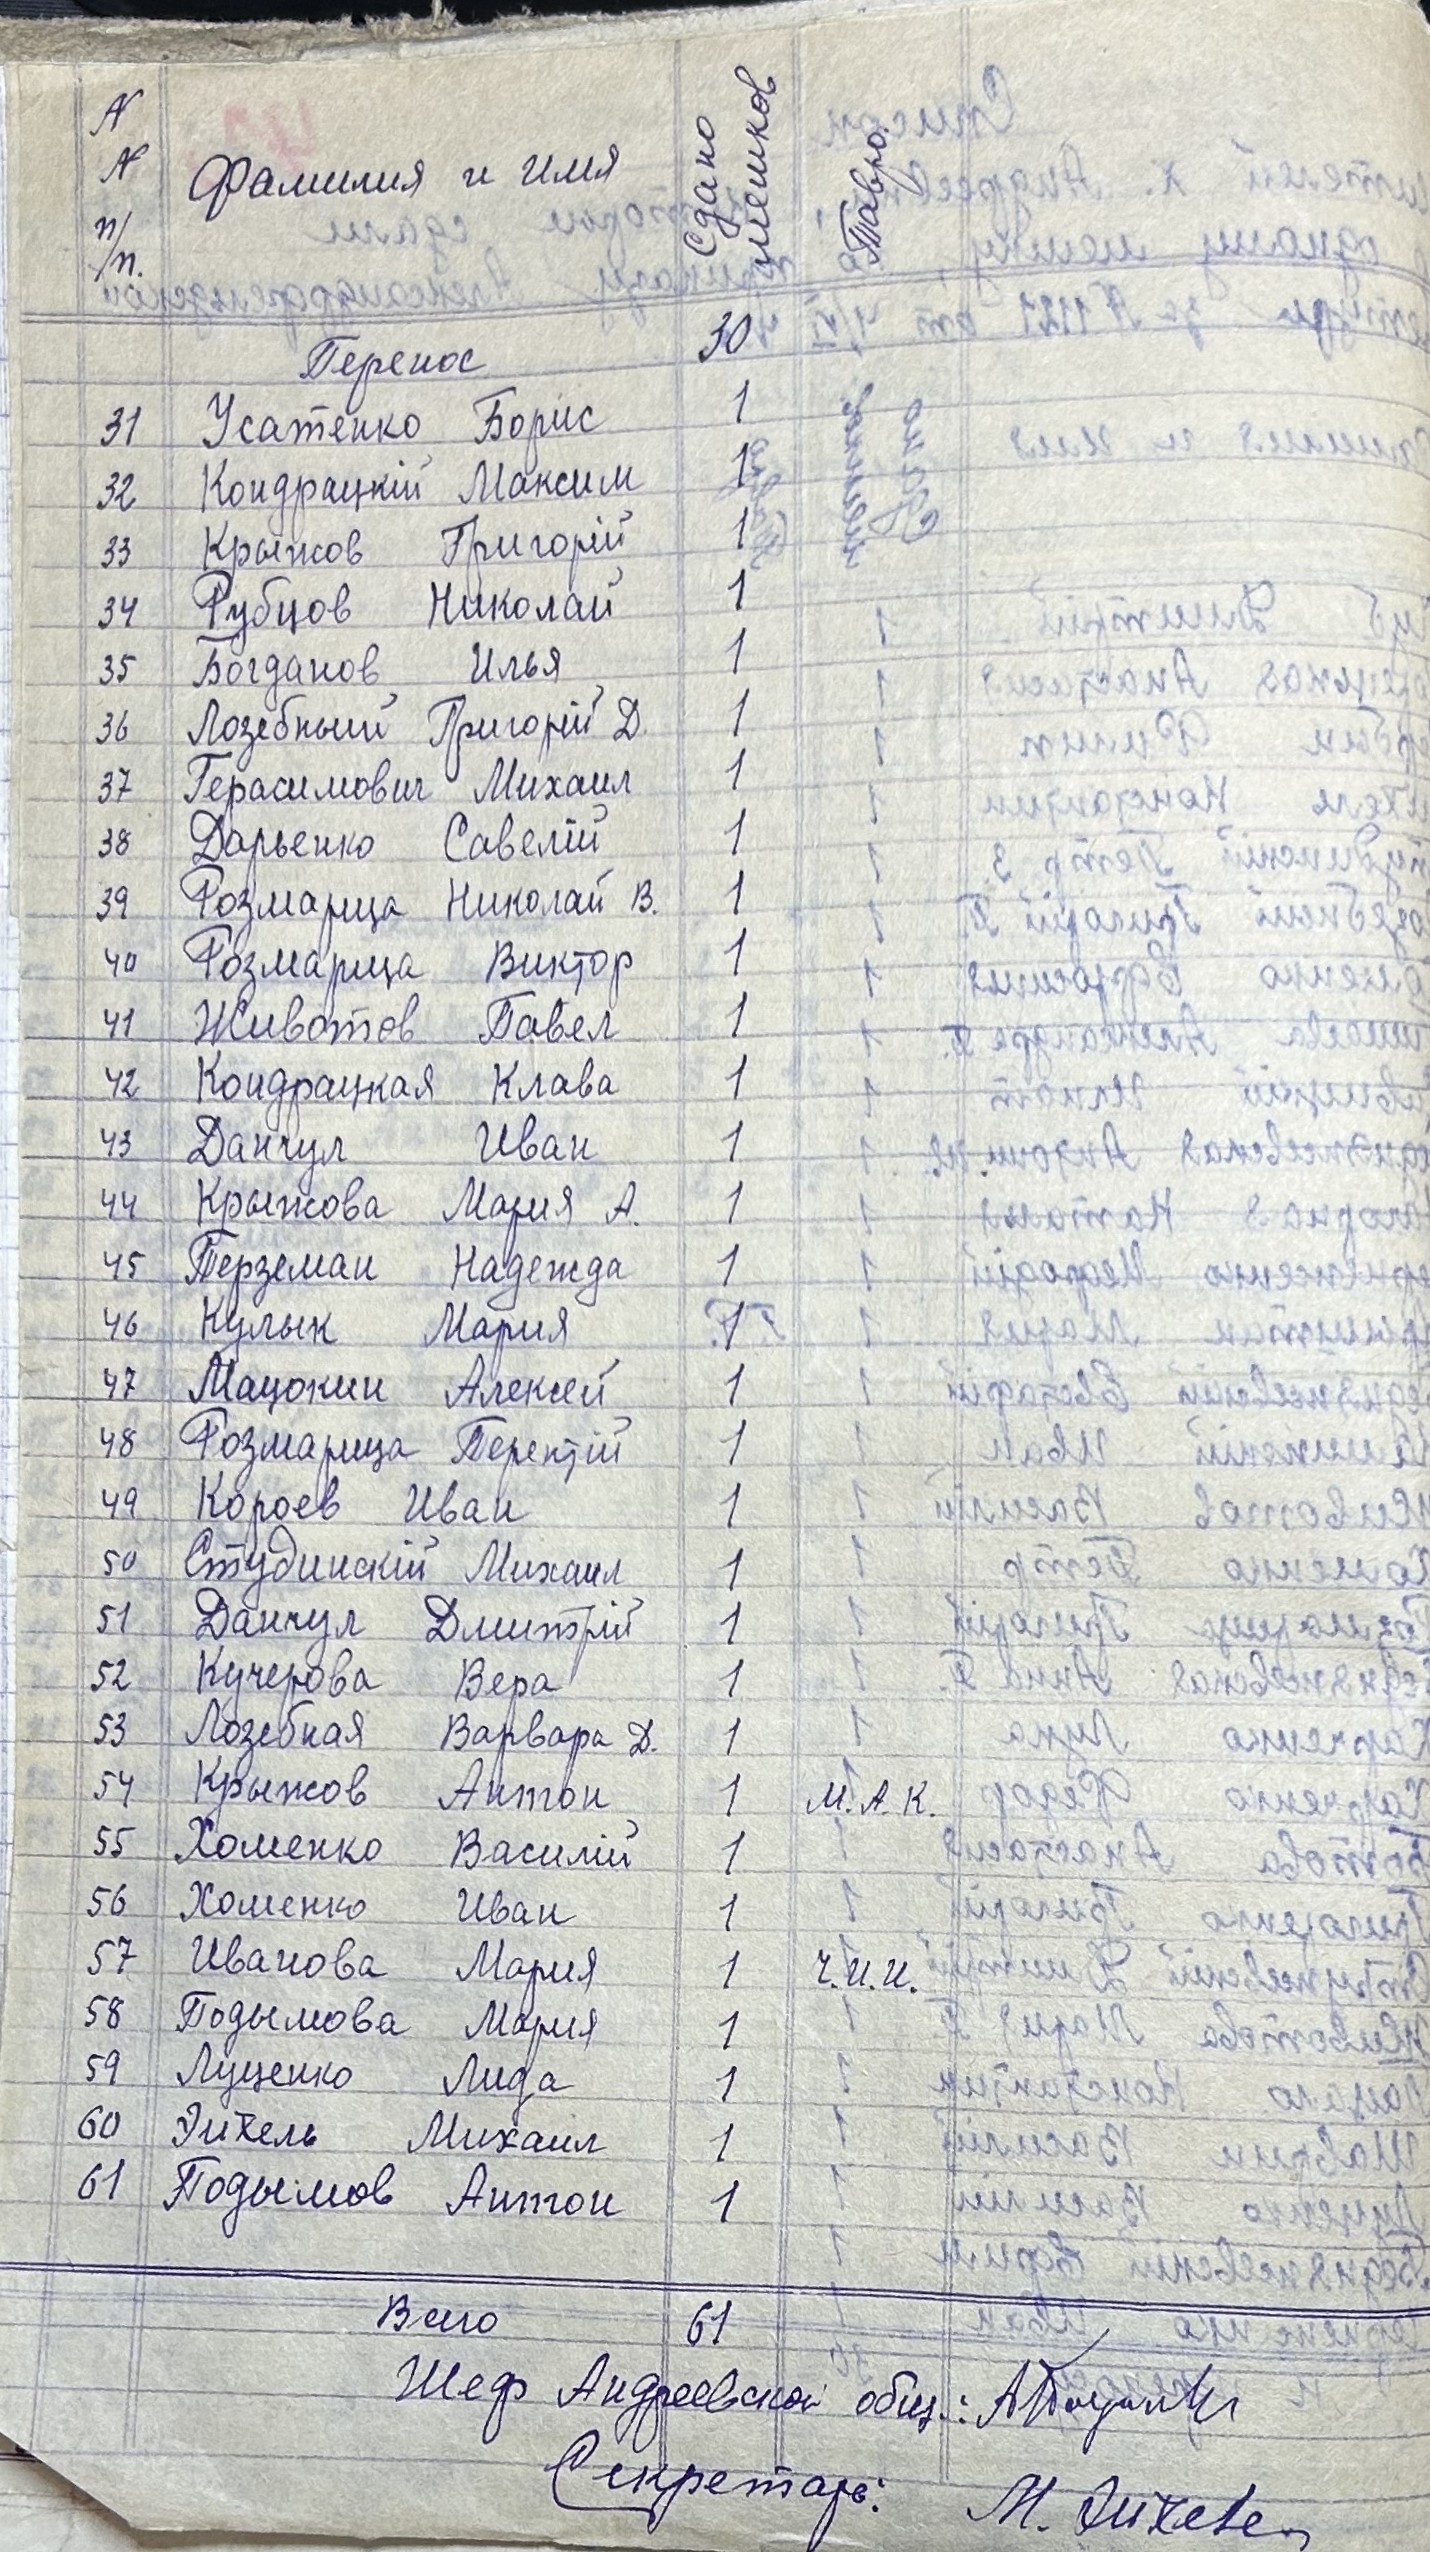 N N п/п. Фамилия и имя Сдано мешков Тавро.
Перенос 30
31 Усатенко Борис 1
32 Кондрацкій Максим 1
33 Крыжов Григорій 1
34 Рубцов Николай 1
35 Богданов Илья 1
36 Лозебный Григорій Д. 1
37 Герасимович Михаил 1
38 Дарьенко Савелій 1
39 Розмарица Николай В. 1
40 Розмарица Виктор 1
41 Животов Павел 1
42 Кондрацкая Клава 1
43 Данчул Иван 1
44 Крыжова Мария А. 1
45 Терземан Надежда 1
46 Кулык Мария 1
47 Мацокин Алексей 1
48 Розмарица Терентій 1
49 Короев Иван 1
50 Студинскій Михаил 1
51 Данчул Дмитрій 1
52 Кучерова Вера 1
53 Лозебная Варвара Д. 1
54 Крыжов Антон 1 М. А. К.
55 Хоменко Василій 1
56 Хоменко Иван 1
57 Иванова Мария 1 Ч. И. И.
58 Подымова Мария 1
59 Луценко Лида 1
60 Эйхель Михаил 1
61 Подымов Антон 1
Всего 61
Шеф Андреевской общ.:
Секретарь: М. Эйхель